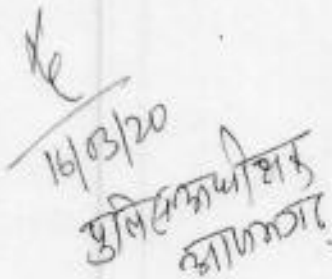 16/03/20
पुलिस अधीक्षक
आजमगढ़